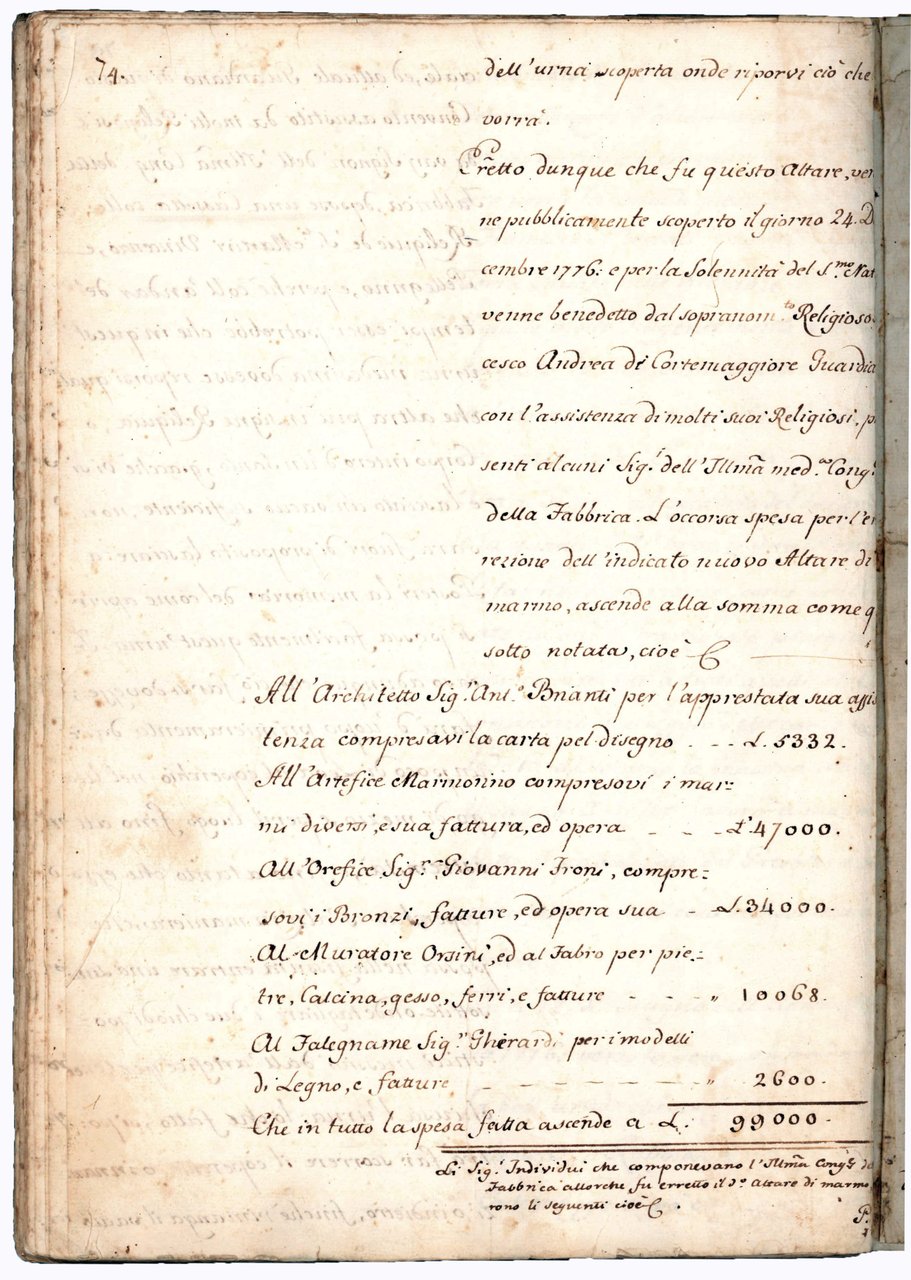 74.
dell'urna scoperta onde riporvi ciò che
vorrà.
Eretto dunque che fu questo Altare, ven
ne pubblicamente scoperto il giorno 24. D
cembre 1776: e per la Solennità del S.mo Nat
venne benedetto dal sopranom.to Religioso
cesco Andrea di Cortemaggiore Guardia
con l'assistenza di molti suoi Religiosi, p
senti alcuni Sig.i dell'Illma med.a Cong.
della Fabbrica. L'occorsa spesa per l'e
rezione dell'indicato nuovo Altare di
marmo, ascende alla somma come q
sotto notata, cioè
All'Architetto Sig.r Ant.o Brianti per l'apprestata sua assis
tenza compresavi la carta pel disegno - - £. 5332.
All'Artefice Marmorino compresovi i mar=
mi diversi, e sua fattura, ed opera - - - £. 47000.
All'Orefice Sig.r Giovanni Froni, compre=
sovi i Bronzi, fatture, ed opera sua - £. 34000.
Al Muratore Orsini, ed al Fabro per pie=
tre, Calcina, gesso, ferri, e fatture - - - " 10068.
Al Falegname Sig.r Gherardi per i modelli
di Legno, e fatture - - - - - - - " 2600.
Che in tutto la spesa fatta ascende a £. 99000.
Li Sig.i Individui che componevano l'Illma Cong. da
Fabbrica allorche fu erretto il d.o Altare di marmo,
rono li seguenti cioè.